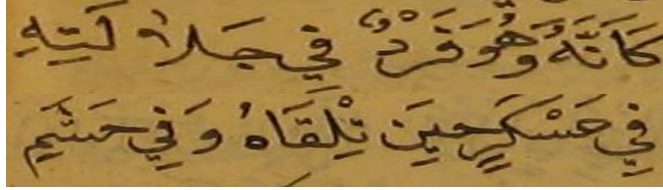 كَاَنَّهُ وَهُوَ فَرْدٌ فِي جَلاَ لَتِهِ
فِي عَسْكَرٍ حِينَ تَلْقَاهُ وَفِي حَشَمِ